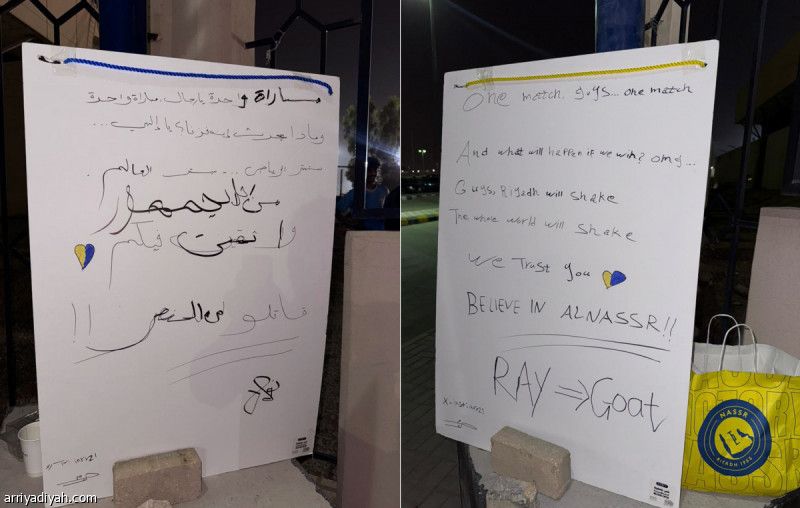 مباراة واحدة يا رجال.. مباراة واحدة
وماذا يحدث إن فزنا؟ يا إلهي...
ستهتز الرياض... ستهتز العالم.
من أجل الجمهور
واثقين فيكم
قاتلو من النصر !!
One match, guys... one match
And what will happen if we win? omg...
Guys, Riyadh will shake
The whole world will shake
We Trust you
BELIEVE IN ALNASSR!!
RAY => Goat
NASSR
RIYADH 1955
arriyadiyah.com